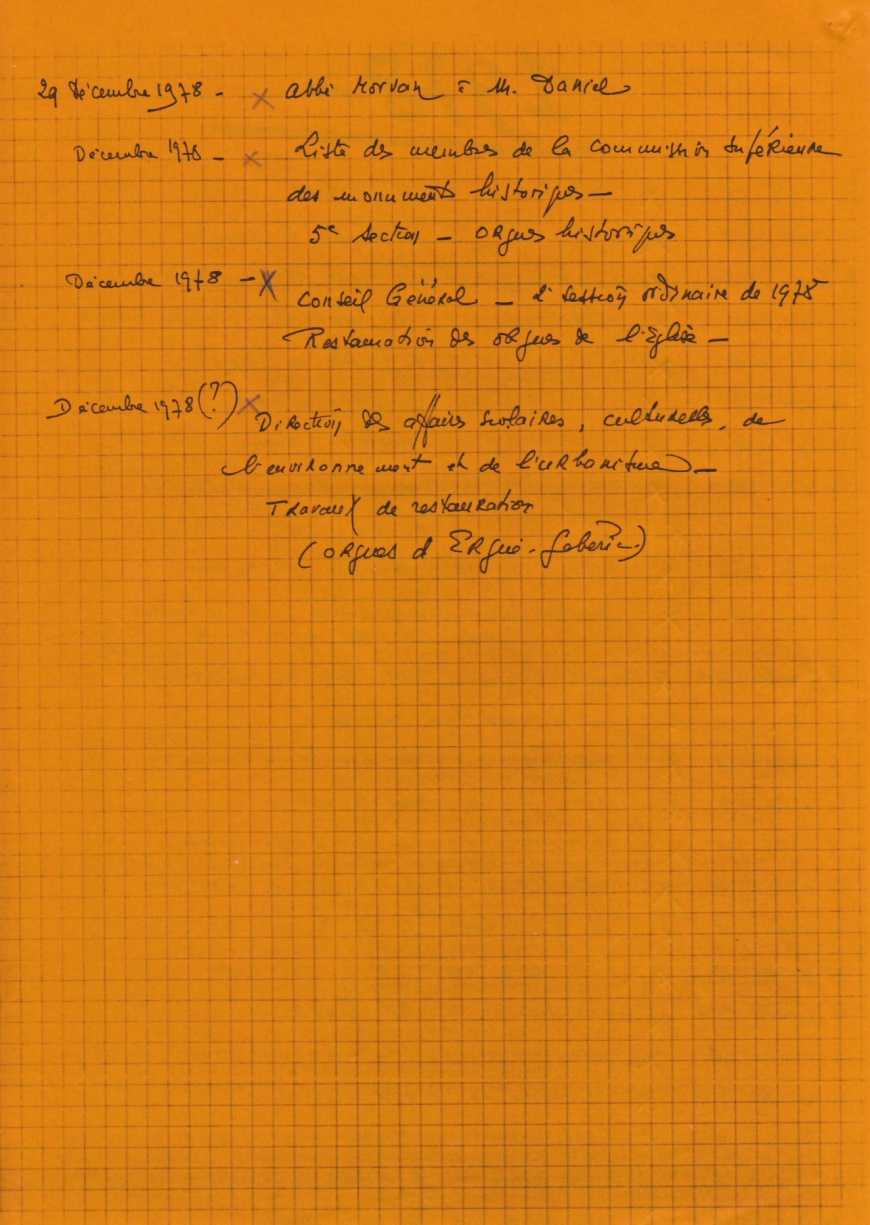 29 Décembre 1978 - x Abbé Morvan à M. Daniel
Décembre 1978 - x Liste des membres de la commission supérieure
des monuments historiques -
5e section - orgues historiques
Décembre 1978 - x Conseil Général - 2e session ordinaire de 1978
Restauration des orgues de l'Eglise -
Décembre 1978 (?) x Direction des affaires scolaires, culturelles, de
l'environnement et de l'urbanisme -
Travaux de restauration
(orgues d'Ergué-Gabéric)